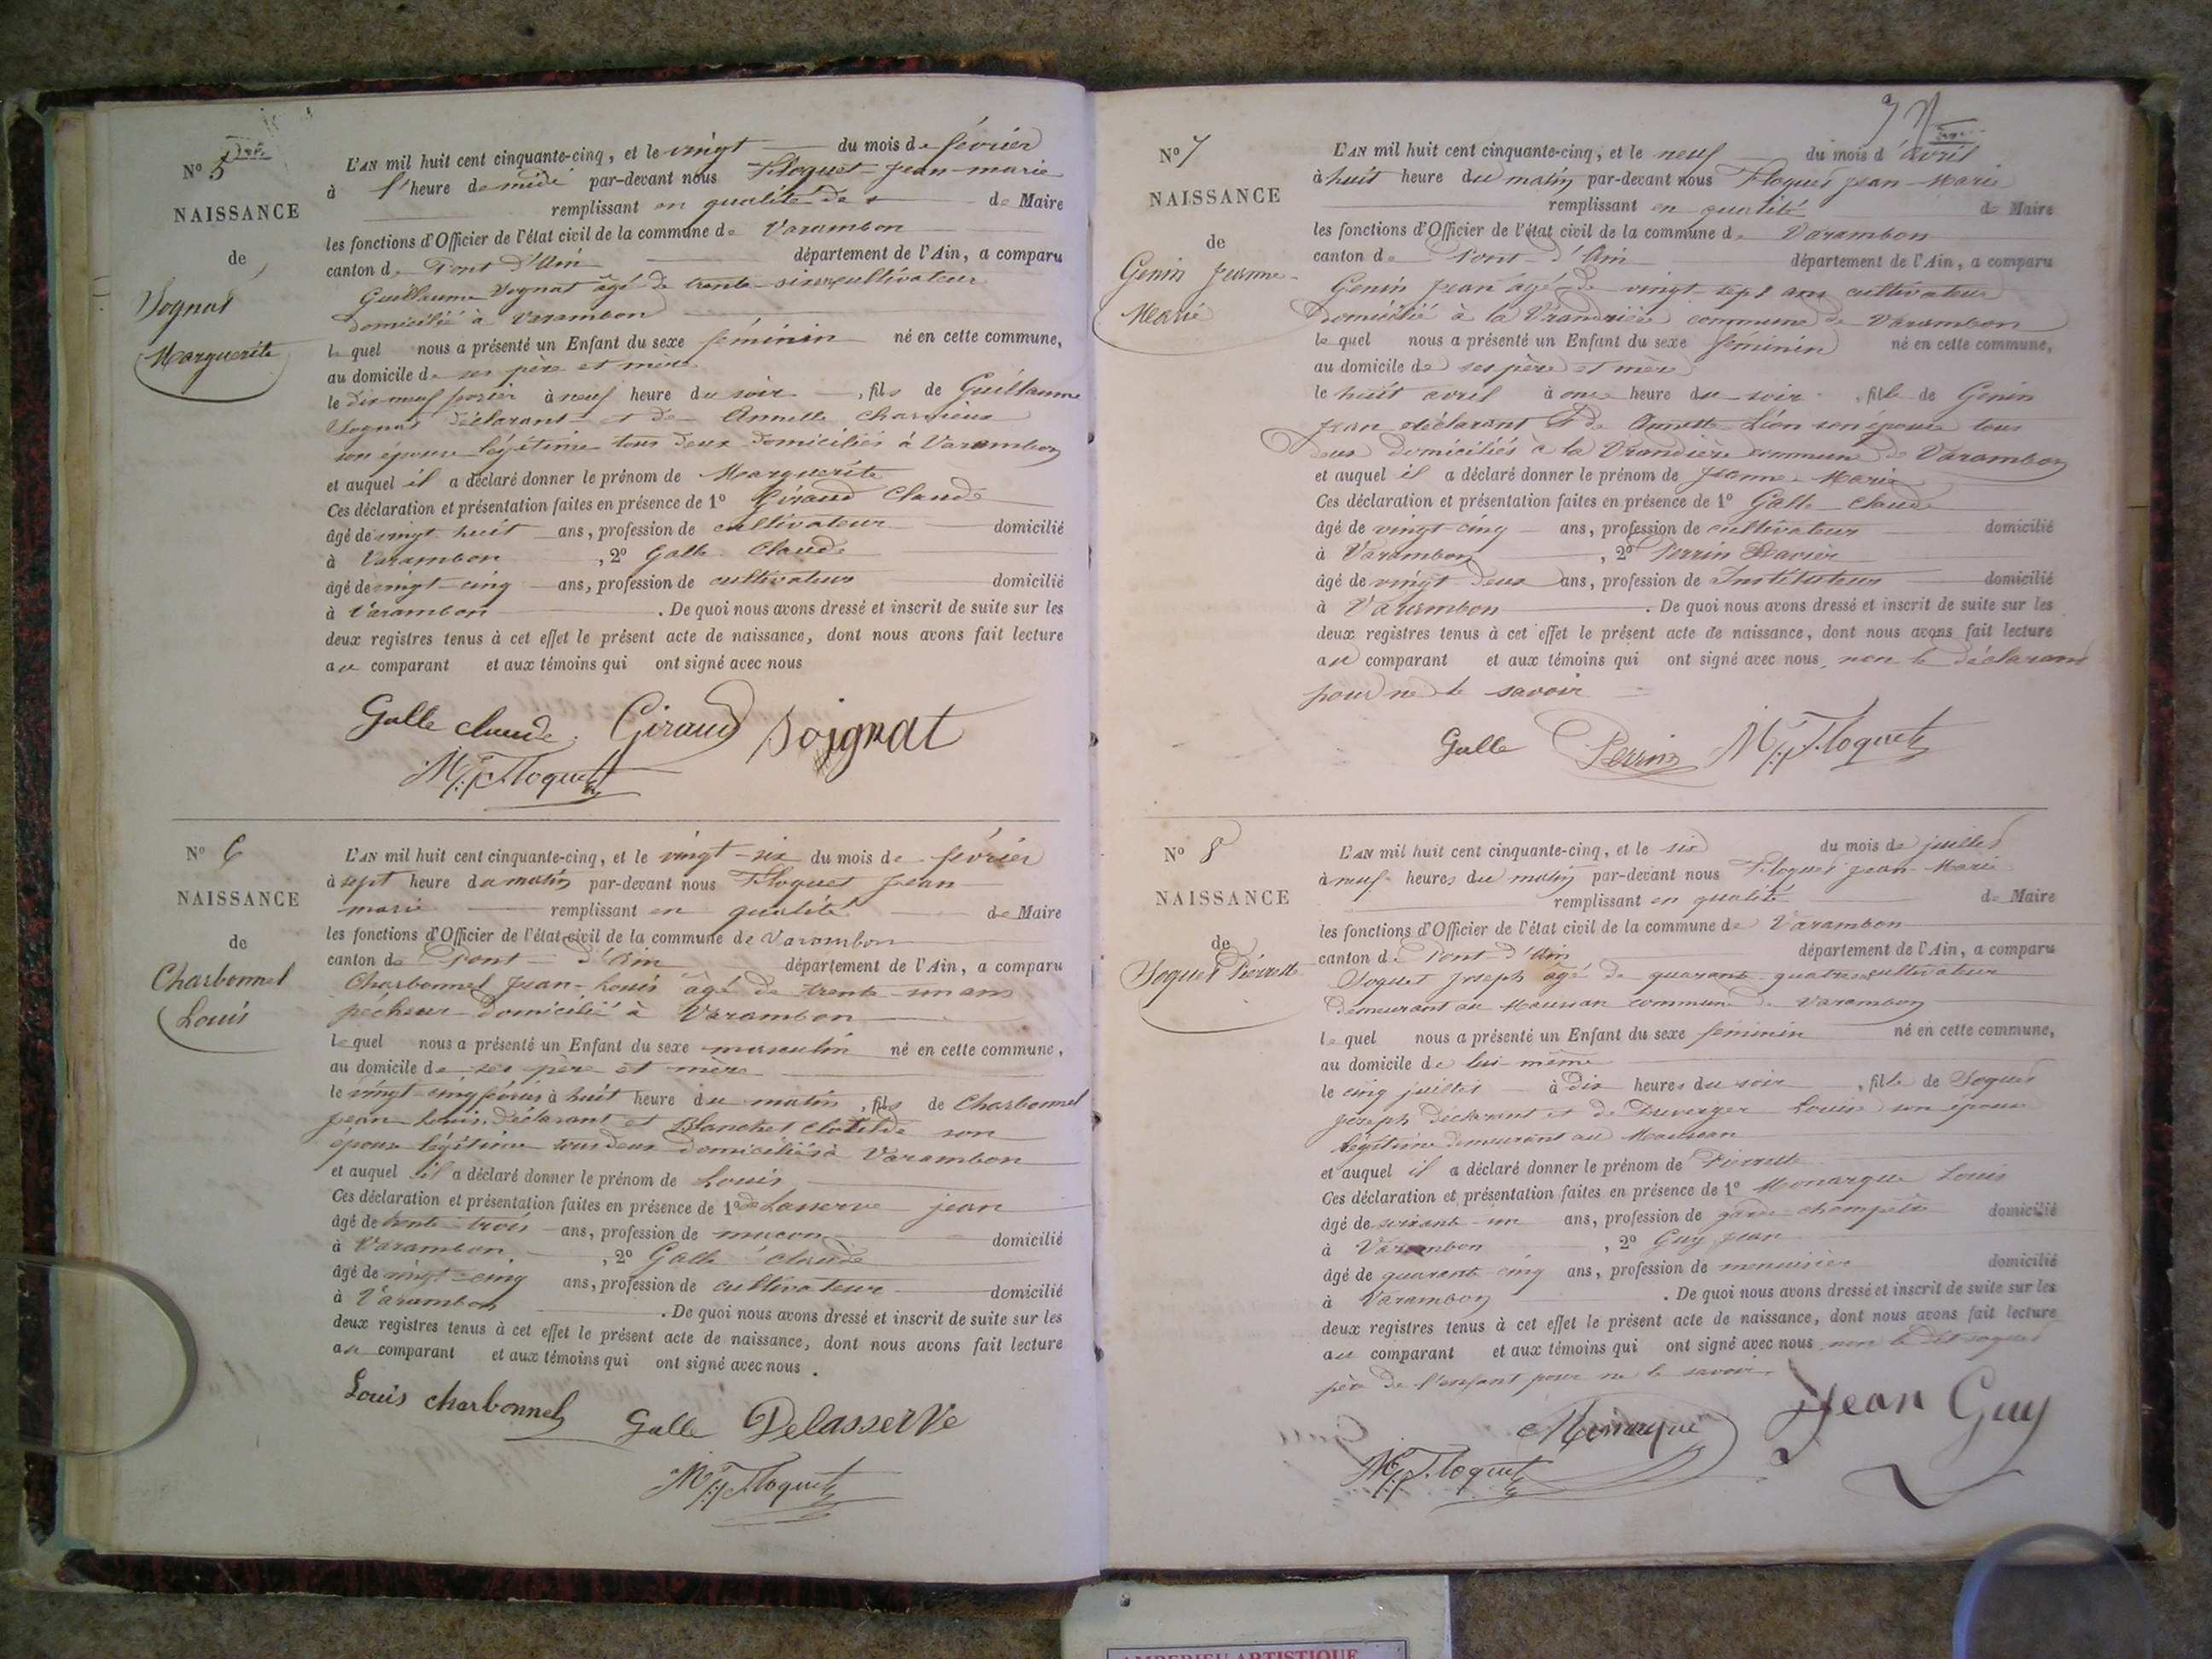 N° 5
NAISSANCE
de
Sognat
Marguerite
L'AN mil huit cent cinquante-cinq, et le vingt du mois de février
à l'heure de midi par-devant nous Floquet Jean-marie
remplissant en qualité de Maire
les fonctions d'Officier de l'état civil de la commune de Varambon
canton de Pont d'Ain département de l'Ain, a comparu
Guillaume Sognat âgé de trente-six cultivateur
domicilié à Varambon
le quel nous a présenté un Enfant du sexe féminin né en cette commune,
au domicile de ses père et mère
le dix neuf à neuf heure du soir, fils de Guillaume
Sognat déclarant et de Annette
son épouse légitime tous deux domiciliés à Varambon
et auquel il a déclaré donner le prénom de Marguerite
Ces déclaration et présentation faites en présence de 1° Giraud Claude
âgé de vingt huit ans, profession de cultivateur domicilié
à Varambon, 2° Galle Claude
âgé de vingt-cinq ans, profession de cultivateur domicilié
à Varambon. De quoi nous avons dressé et inscrit de suite sur les
deux registres tenus à cet effet le présent acte de naissance, dont nous avons fait lecture
au comparant et aux témoins qui ont signé avec nous
Galle claude. Giraud Soignat
Floquet
N° 6
NAISSANCE
de
Charbonnel
Louis
L'AN mil huit cent cinquante-cinq, et le vingt-six du mois de février
à sept heure du matin par-devant nous Floquet Jean
marie remplissant en qualité de Maire
les fonctions d'Officier de l'état civil de la commune de Varambon
canton de Pont-d'Ain département de l'Ain, a comparu
Charbonnel Jean-Louis âgé de trente-un ans
pécheur domicilié à Varambon
le quel nous a présenté un Enfant du sexe masculin né en cette commune,
au domicile de ses père et mère
le vingt-cinq février à huit heure du matin, fils de Charbonnel
Jean Louis déclarant et Blanchet Clotilde son
épouse légitime tous deux domiciliés à Varambon
et auquel il a déclaré donner le prénom de Louis
Ces déclaration et présentation faites en présence de 1° deLasserve jean
âgé de trente-trois ans, profession de maçon domicilié
à Varambon, 2° Galle claude
âgé de vingt-cinq ans, profession de cultivateur domicilié
à Varambon. De quoi nous avons dressé et inscrit de suite sur les
deux registres tenus à cet effet le présent acte de naissance, dont nous avons fait lecture
au comparant et aux témoins qui ont signé avec nous.
Louis charbonnel Galle Delasserve
Floquet
N° 7
NAISSANCE
de
Genin Jeanne
Marie
L'AN mil huit cent cinquante-cinq, et le neuf du mois d'avril
à huit heure du matin par-devant nous Floquet Jean-Marie
remplissant en qualité de Maire
les fonctions d'Officier de l'état civil de la commune de Varambon
canton de Pont-d'Ain département de l'Ain, a comparu
Genin Jean âgé de vingt-sept ans cultivateur
Domicilié à la Vrandière commune de Varambon
le quel nous a présenté un Enfant du sexe féminin né en cette commune,
au domicile de ses père et mère
le huit avril à onze heure du soir, fille de Genin
Jean déclarant et de Annette Léon son épouse tous
deux domiciliés à la Vrandière commune de Varambon
et auquel il a déclaré donner le prénom de Jeanne-Marie
Ces déclaration et présentation faites en présence de 1° Galle Claude
âgé de vingt-cinq ans, profession de cultivateur domicilié
à Varambon, 2° Perrin Xavier
âgé de vingt deux ans, profession de Instituteur domicilié
à Varambon. De quoi nous avons dressé et inscrit de suite sur les
deux registres tenus à cet effet le présent acte de naissance, dont nous avons fait lecture
au comparant et aux témoins qui ont signé avec nous, non le déclarant
pour ne le savoir
Galle Perrin Floquet
N° 8
NAISSANCE
de
Soquet Pierrette
L'AN mil huit cent cinquante-cinq, et le six du mois de juillet
à neuf heures du matin par-devant nous Floquet Jean-Marie
remplissant en qualité de Maire
les fonctions d'Officier de l'état civil de la commune de Varambon
canton de Pont-d'Ain département de l'Ain, a comparu
Soquet Joseph âgé de quarante-quatre cultivateur
demeurant au commune de Varambon
le quel nous a présenté un Enfant du sexe féminin né en cette commune,
au domicile de lui-même
le cinq juillet à dix heures du soir, fille de Soquet
Joseph déclarant et de Duverger Louise son épouse
légitime demeurant au
et auquel il a déclaré donner le prénom de Pierrette
Ces déclaration et présentation faites en présence de 1° Monarque Louis
âgé de soixante-un ans, profession de garde-champêtre domicilié
à Varambon, 2° Guy Jean
âgé de quarante cinq ans, profession de menuisier domicilié
à Varambon. De quoi nous avons dressé et inscrit de suite sur les
deux registres tenus à cet effet le présent acte de naissance, dont nous avons fait lecture
au comparant et aux témoins qui ont signé avec nous non le dit soquet
père de l'enfant pour ne le savoir.
Monarque Jean Guy
Floquet
AMBERIEU ARTISTIQUE